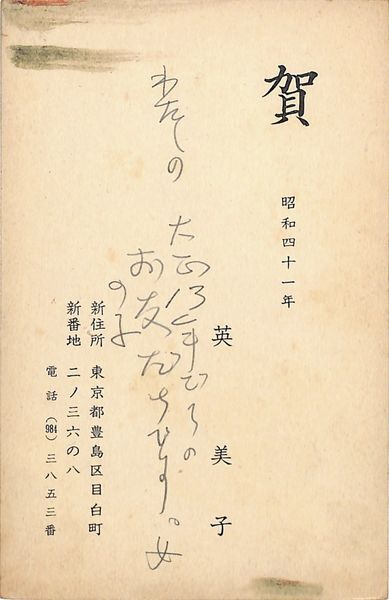 賀
昭和四十一年
英美子
わたしの
大正13年ころの
お友だちです。女
の子
新住所 東京都豊島区目白町
新番地 二ノ三六の八
電話 (984) 三八五三番